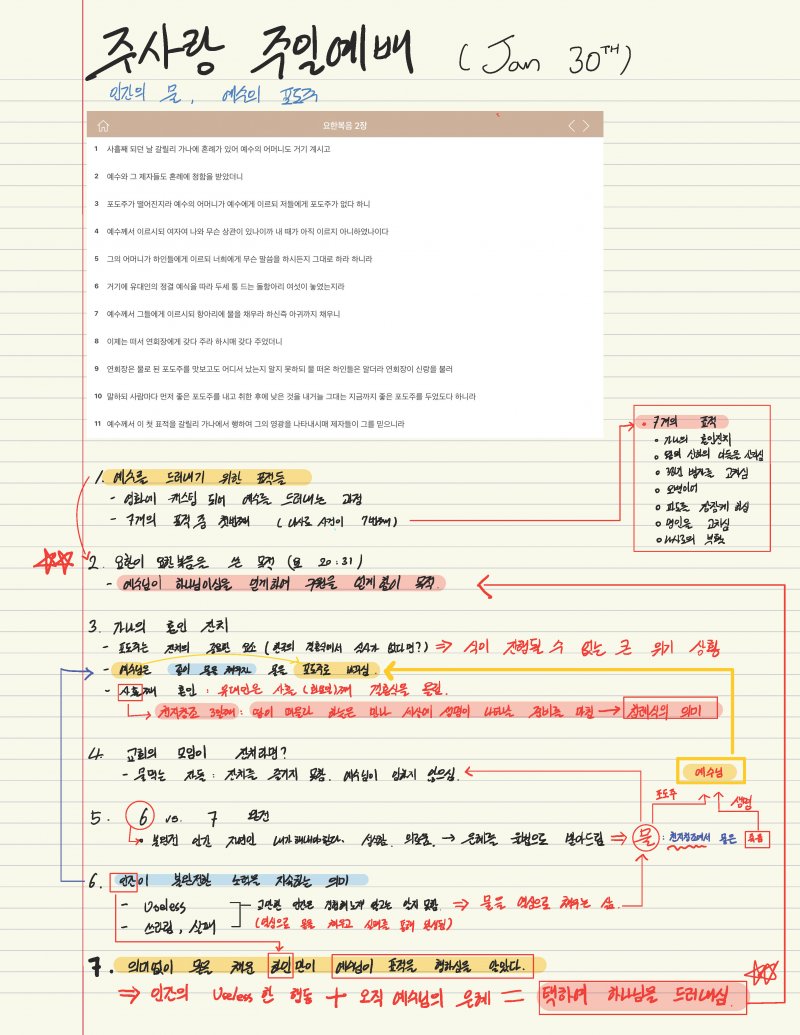 주사랑 주일예배 (Jan 30TH)
인간의 물, 예수의 포도주
요한복음 2장
1 사흘째 되던 날 갈릴리 가나에 혼례가 있어 예수의 어머니도 거기 계시고
2 예수와 그 제자들도 혼례에 청함을 받았더니
3 포도주가 떨어진지라 예수의 어머니가 예수에게 이르되 저들에게 포도주가 없다 하니
4 예수께서 이르시되 여자여 나와 무슨 상관이 있나이까 내 때가 아직 이르지 아니하였나이다
5 그의 어머니가 하인들에게 이르되 너희에게 무슨 말씀을 하시든지 그대로 하라 하니라
6 거기에 유대인의 정결 예식을 따라 두세 통 드는 돌항아리 여섯이 놓였는지라
7 예수께서 그들에게 이르시되 항아리에 물을 채우라 하신즉 아귀까지 채우니
8 이제는 떠서 연회장에게 갖다 주라 하시매 갖다 주었더니
9 연회장은 물로 된 포도주를 맛보고도 어디서 났는지 알지 못하되 물 떠온 하인들은 알더라 연회장이 신랑을 불러
10 말하되 사람마다 먼저 좋은 포도주를 내고 취한 후에 낮은 것을 내거늘 그대는 지금까지 좋은 포도주를 두었도다 하니라
11 예수께서 이 첫 표적을 갈릴리 가나에서 행하여 그의 영광을 나타내시매 제자들이 그를 믿으니라
7개의 표적
가나의 혼인잔치
신하의 아들을 살리심
38년 병자를 고쳐심
오병이어
파도를 잠잠케 하심
맹인을 고치심
나사로의 부활
1. 예수를 드러내기 위한 표적들
- 영화에 캐스팅 되어 예수를 드러내는 과정
- 7개의 표적 중 첫번째 (나사로 사건이 7번째)
2. 요한이 요한복음을 쓴 목적 (요 20:31)
- 예수님이 하나님이심을 믿게하여 구원을 얻게 함이 목적.
3. 가나의 혼인 잔치
- 포도주는 잔치의 중요한 요소 (한국의 결혼식에서 식사가 없다면?) ⇒ 식이 진행될 수 없는 큰 위기 상황
- 예수님은 같이 물을 채우자 물을 포도주로 바꾸심.
- 사흘째 혼인 : 유대인은 사흘 (화요일)째 결혼식을 올림.
천지창조 3일째 : 땅이 떠올라 하늘을 만나 세상에 생명이 나타날 준비를 마침 → 침례식의 의미
4. 교회의 모임이 잔치라면?
- 물먹는 자들 : 잔치를 즐기지 못함. 예수님이 임하지 않으심.
예수님
포도주
생명
5. 6 vs. 7 완전
불완전 인간 자연인 내가 해내야한다. 성실함. 의로움. → 은혜를 율법으로 받아드림 ⇒ 물 : 천지창조에서 물은 죽음
6. 인간이 불완전한 노력을 지속하는 의미
- Useless
- 쓰라림, 실패
교만한 인간은 경험해보지 않고는 알지 못함. ⇒ 물을 열심으로 채우는 삶.
(열심으로 물을 채우고 실패를 통해 완성됨)
7. 의미없이 물을 채운 하인만이 예수님이 표적을 행하심을 알았다.
⇒ 인간의 Useless 한 행동 + 오직 예수님의 은혜 = 택하여 하나님을 드러내심.